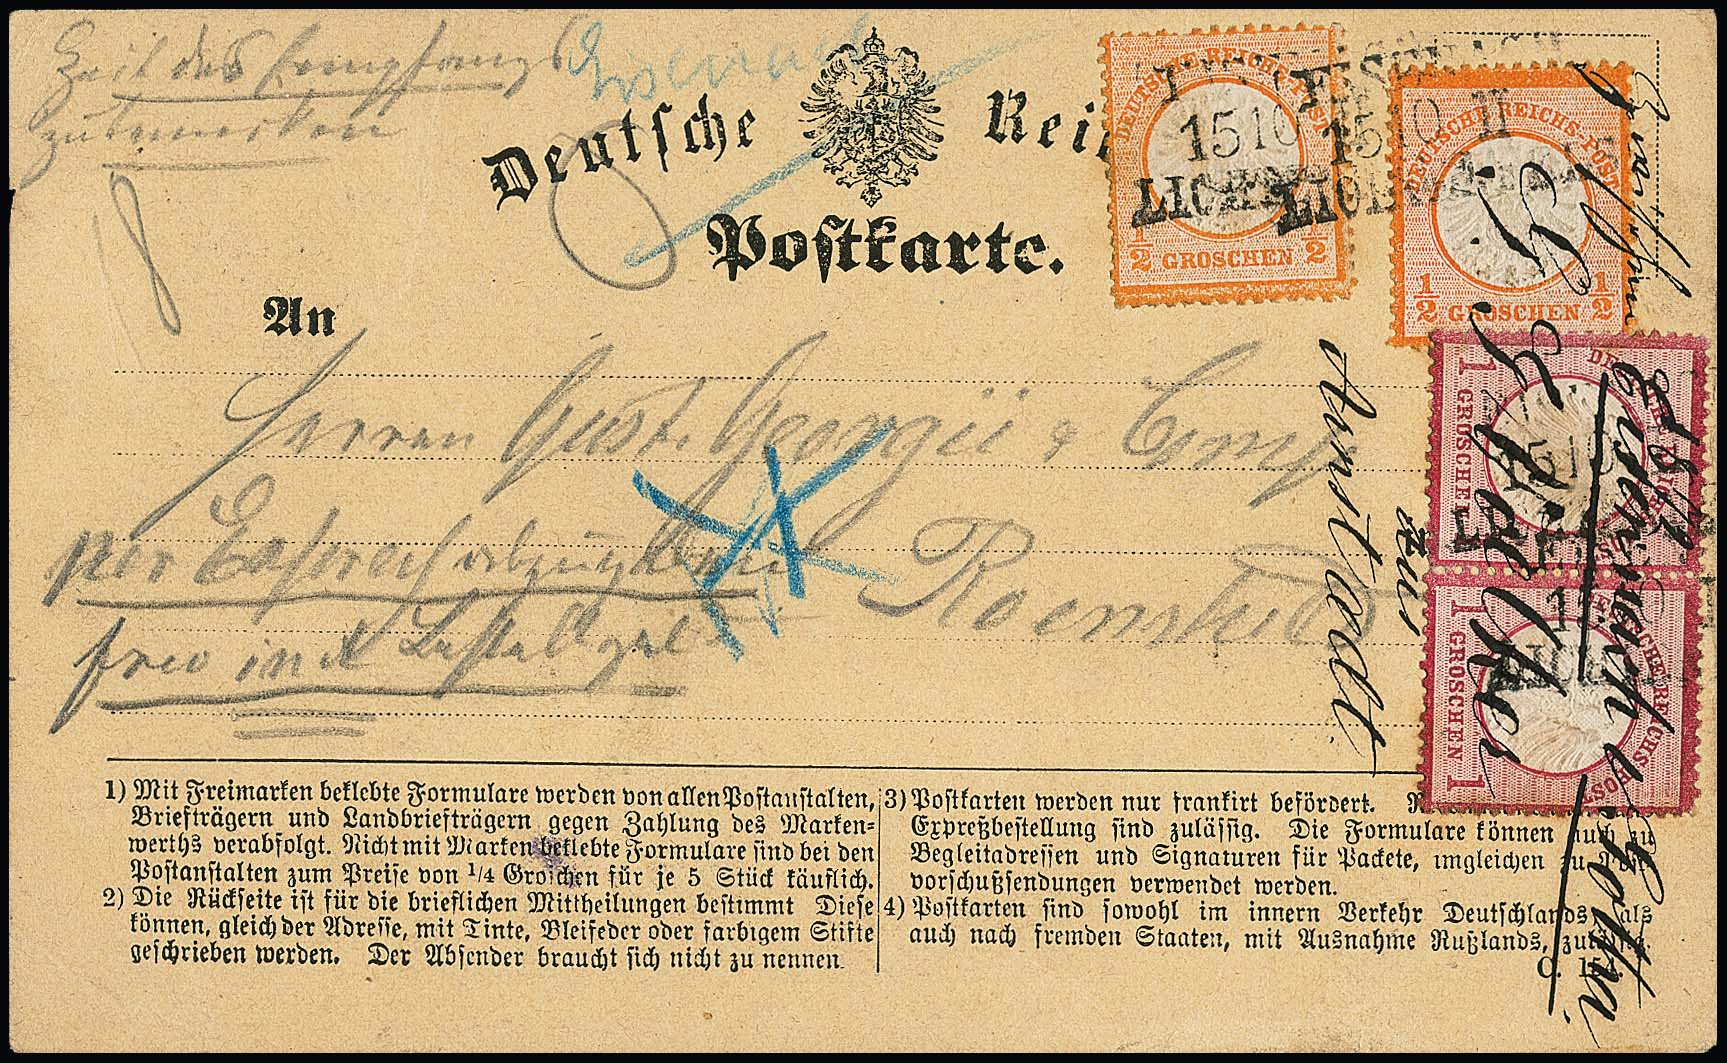 Zeit des Empfangs
zu bemerken
Eisenach
Deutsche Reichs
Postkarte.
An
Herren Gust. Georgii & Comp
per Expressen abzugeben
frei incl Bestellgeld
8
DEUTSCHE REICHS-POST
1/2 GROSCHEN 1/2
15 10
DEUTSCHE REICHS-POST
1/2 GROSCHEN 1/2
EISENACH
15 10 II
DEUTSCHE REICHS-POST
1 GROSCHEN 1
DEUTSCHE REICHS-POST
1 GROSCHEN 1
Eisenach Gotha.
aus
Arnstadt.
1) Mit Freimarken beklebte Formulare werden von allen Postanstalten,
Briefträgern und Landbriefträgern gegen Zahlung des Marken-
werths verabfolgt. Nicht mit Marken beklebte Formulare sind bei den
Postanstalten zum Preise von 1/4 Groschen für je 5 Stück käuflich.
2) Die Rückseite ist für die brieflichen Mittheilungen bestimmt Diese
können, gleich der Adresse, mit Tinte, Bleifeder oder farbigem Stifte
geschrieben werden. Der Absender braucht sich nicht zu nennen.
3) Postkarten werden nur frankirt befördert.
Expreßbestellung sind zulässig. Die Formulare können auch zu
Begleitadressen und Signaturen für Packete, imgleichen zu Post
vorschußsendungen verwendet werden.
4) Postkarten sind sowohl im innern Verkehr Deutschlands, als
auch nach fremden Staaten, mit Ausnahme Rußlands, zulässig.
C. 154.